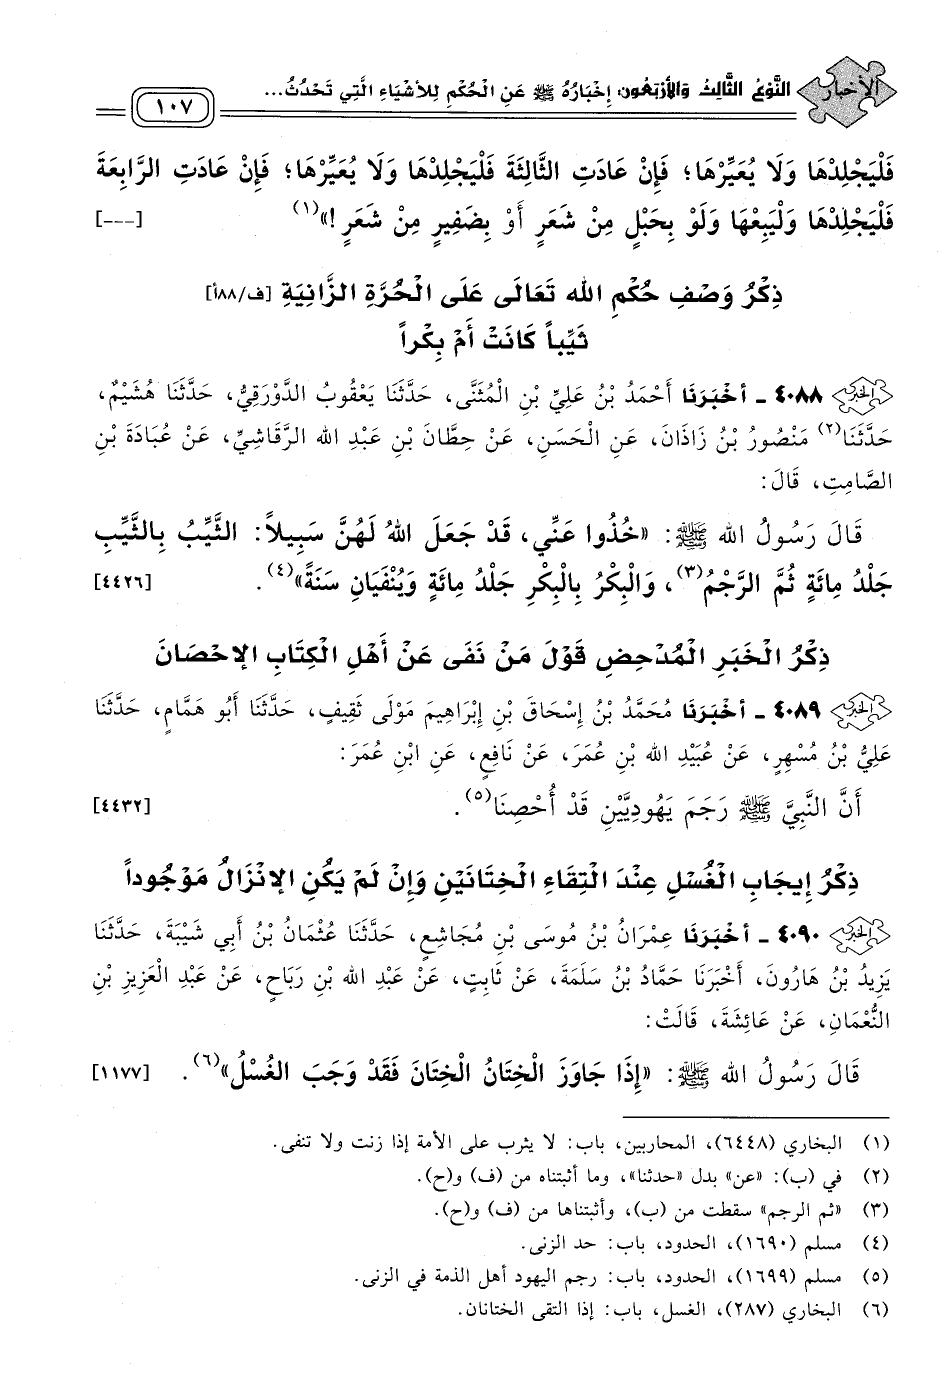 الأخبار
النَّوْعُ الثَّالِثُ وَالأَرْبَعُون: إِخْبَارُهُ ﷺ عَنِ الْحُكْمِ لِلأَشْيَاءِ الَّتِي تَحْدُثُ...
١٠٧
فَلْيَجْلِدْهَا وَلَا يُعَيِّرْهَا؛ فَإِنْ عَادَتِ الثَّالِثَةَ فَلْيَجْلِدْهَا وَلَا يُعَيِّرْهَا؛ فَإِنْ عَادَتِ الرَّابِعَةَ
فَلْيَجْلِدْهَا وَلْيَبِعْهَا وَلَوْ بِحَبْلٍ مِنْ شَعَرٍ أَوْ بِضَفِيرٍ مِنْ شَعَرٍ !»(١) [---]
ذِكْرُ وَصْفِ حُكْمِ الله تَعَالَى عَلَى الْحُرَّةِ الزَّانِيَةِ [ف/٨٨أ]
ثَيِّباً كَانَتْ أَمْ بِكْراً
٤٠٨٨ ـ أَخْبَرَنَا أَحْمَدُ بْنُ عَلِيِّ بْنِ الْمُثَنَّى، حَدَّثَنَا يَعْقُوبُ الدَّوْرَقِيُّ، حَدَّثَنَا هُشَيْمٌ،
حَدَّثَنَا(٢) مَنْصُورُ بْنُ زَاذَانَ، عَنِ الْحَسَنِ، عَنْ حِطَّانَ بْنِ عَبْدِ الله الرَّقَاشِيِّ، عَنْ عُبَادَةَ بْنِ
الصَّامِتِ، قَالَ:
قَالَ رَسُولُ الله ﷺ: «خُذُوا عَنِّي، قَدْ جَعَلَ اللهُ لَهُنَّ سَبِيلاً: الثَّيِّبُ بِالثَّيِّبِ
جَلْدُ مِائَةٍ ثُمَّ الرَّجْمُ(٣)، وَالْبِكْرُ بِالْبِكْرِ جَلْدُ مِائَةٍ وَيُنْفَيَانِ سَنَةً»(٤). [٤٤٢٦]
ذِكْرُ الْخَبَرِ الْمُدْحِضِ قَوْلَ مَنْ نَفَى عَنْ أَهْلِ الْكِتَابِ الإِحْصَانَ
٤٠٨٩ ـ أَخْبَرَنَا مُحَمَّدُ بْنُ إِسْحَاقَ بْنِ إِبْرَاهِيمَ مَوْلَى ثَقِيفٍ، حَدَّثَنَا أَبُو هَمَّامٍ، حَدَّثَنَا
عَلِيُّ بْنُ مُسْهِرٍ، عَنْ عُبَيْدِ الله بْنِ عُمَرَ، عَنْ نَافِعٍ، عَنِ ابْنِ عُمَرَ:
أَنَّ النَّبِيَّ ﷺ رَجَمَ يَهُودِيَّيْنِ قَدْ أُحْصِنَا(٥). [٤٤٣٢]
ذِكْرُ إِيجَابِ الْغُسْلِ عِنْدَ الْتِقَاءِ الْخِتَانَيْنِ وَإِنْ لَمْ يَكُنِ الإِنْزَالُ مَوْجُوداً
٤٠٩٠ ـ أَخْبَرَنَا عِمْرَانُ بْنُ مُوسَى بْنِ مُجَاشِعٍ، حَدَّثَنَا عُثْمَانُ بْنُ أَبِي شَيْبَةَ، حَدَّثَنَا
يَزِيدُ بْنُ هَارُونَ، أَخْبَرَنَا حَمَّادُ بْنُ سَلَمَةَ، عَنْ ثَابِتٍ، عَنْ عَبْدِ الله بْنِ رَبَاحٍ، عَنْ عَبْدِ الْعَزِيزِ بْنِ
النُّعْمَانِ، عَنْ عَائِشَةَ، قَالَتْ:
قَالَ رَسُولُ الله ﷺ: «إِذَا جَاوَزَ الْخِتَانُ الْخِتَانَ فَقَدْ وَجَبَ الغُسْلُ»(٦). [١١٧٧]
(١) البخاري (٦٤٤٨)، المحاربين، باب: لا يثرب على الأمة إذا زنت ولا تنفى.
(٢) في (ب): «عن» بدل «حدثنا»، وما أثبتناه من (ف) و(ح).
(٣) «ثم الرجم» سقطت من (ب)، وأثبتناها من (ف) و(ح).
(٤) مسلم (١٦٩٠)، الحدود، باب: حد الزنى.
(٥) مسلم (١٦٩٩)، الحدود، باب: رجم اليهود أهل الذمة في الزنى.
(٦) البخاري (٢٨٧)، الغسل، باب: إذا التقى الختانان.